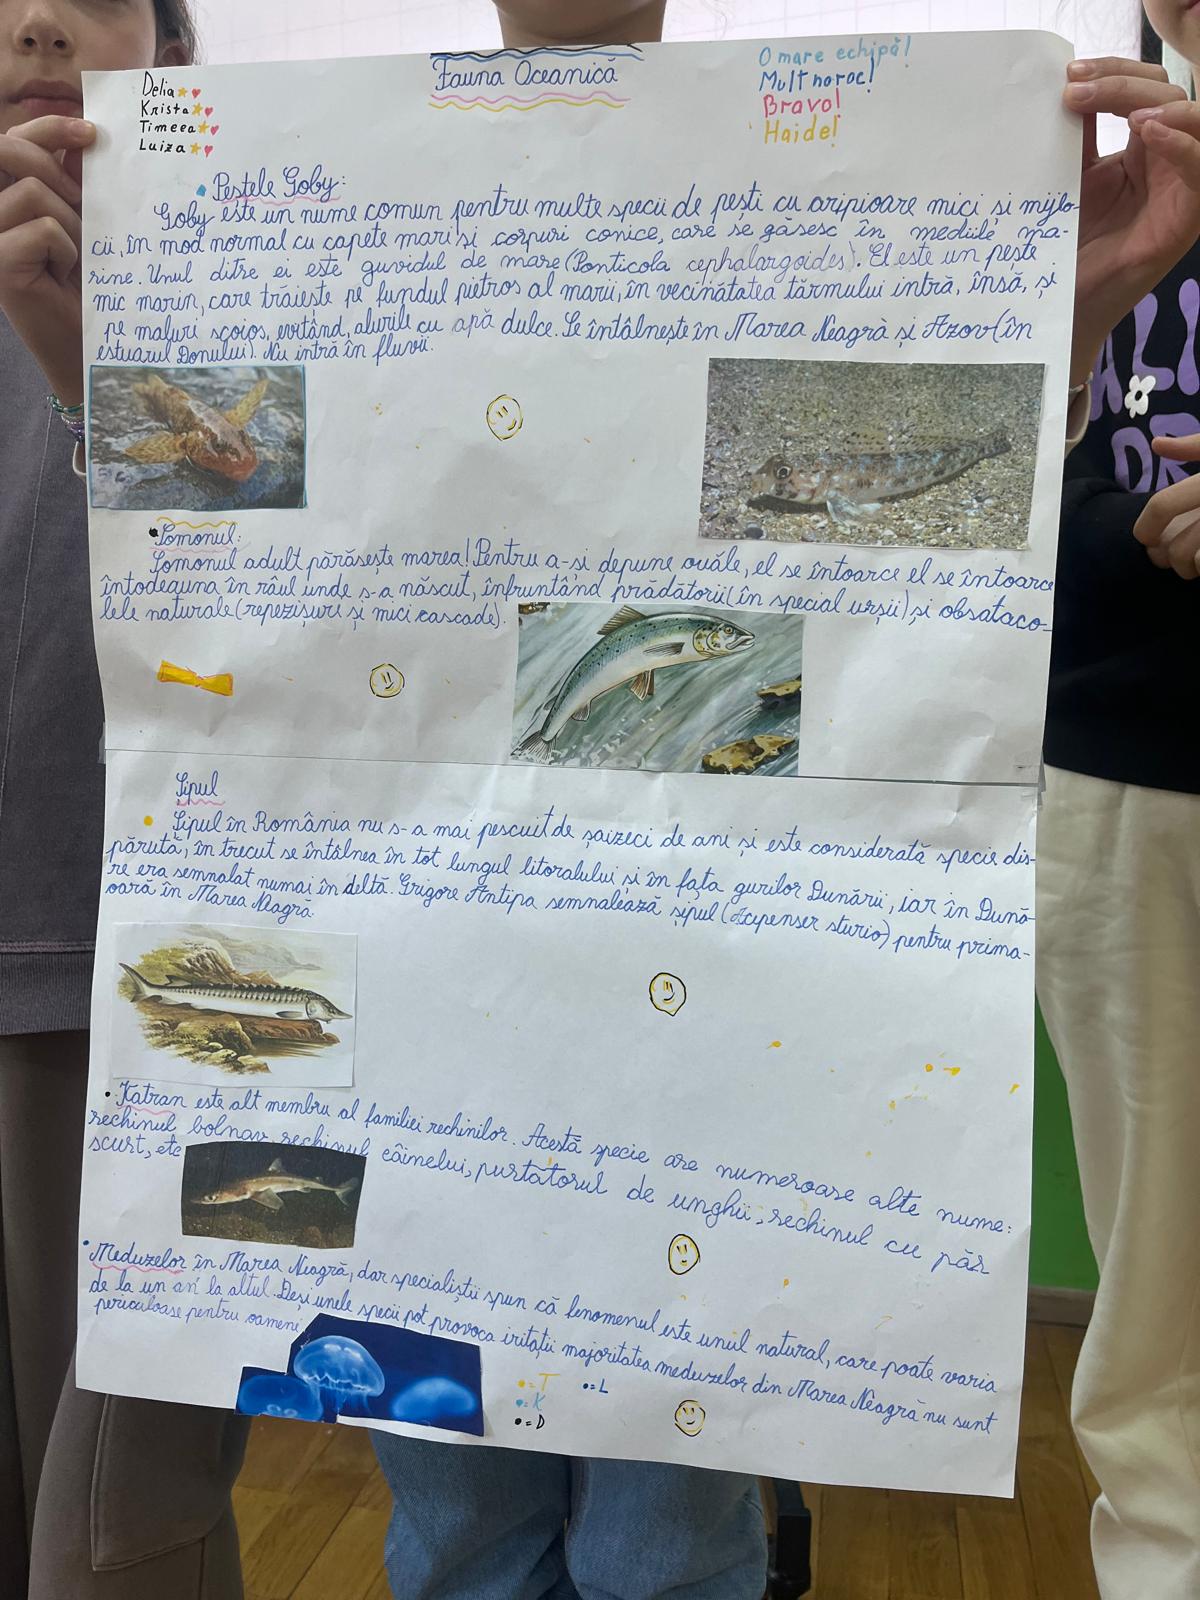 Fauna Oceanică
Delia
Krista
Timeea
Luiza
O mare echipă!
Mult noroc!
Bravo!
Haide!
Peștele Goby:
Goby este un nume comun pentru multe specii de pești cu aripioare mici și mijlo-
cii, în mod normal cu capete mari și corpuri conice, care se găsesc în mediile ma-
rine. Unul ditre ei este guvidul de mare (Ponticola cephalargoides). El este un pește
mic marin, care trăiește pe fundul pietros al marii, în vecinătatea tărmului intră, însă, și
pe maluri scoios, evitând, alurile cu apă dulce. Se întâlnește în Marea Neagră și Azov (în
estuarul Donului). Nu intră în fluvii.
Somonul:
Somonul adult părăsește marea! Pentru a-și depune ouăle, el se întoarce el se întoarce
întodeauna în râul unde s-a născut, înfruntând prădătorii (în special urșii) și obsataco-
lele naturale (repezișuri și mici cascade).
Șipul
Șipul în România nu s-a mai pescuit de șaizeci de ani și este considerată specie dis-
părută, în trecut se întâlnea în tot lungul litoralului și în fața gurilor Dunării, iar în Dună-
re era semnalat numai în deltă. Grigore Antipa semnalează șipul (Acipenser sturio) pentru prima-
oară în Marea Neagră.
Katran este alt membru al familiei rechinilor. Acestă specie are numeroase alte nume:
rechinul bolnav, rechinul câinelui, purtatorul de unghii, rechinul cu păr
scurt, etc
Meduzelor în Marea Neagră, dar specialiștii spun că fenomenul este unul natural, care poate varia
de la un an la altul. Deși unele specii pot provoca iritații majoritatea meduzelor din Marea Neagră nu sunt
periculoase pentru oameni.
●=T ●=L
●=K
●=D